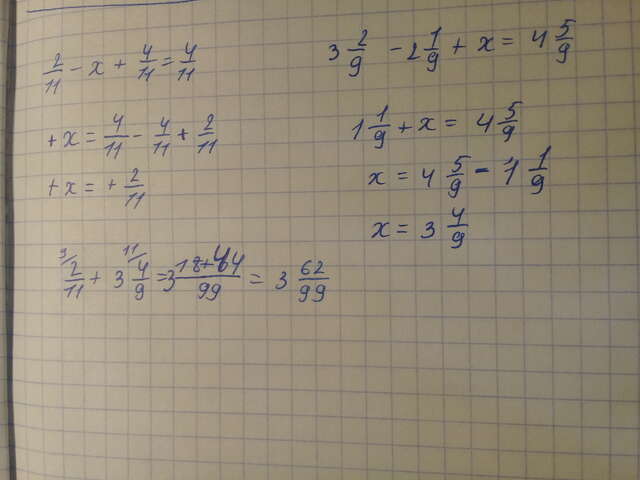 2/11 - x + 4/11 = 4/11
+x = 4/11 - 4/11 + 2/11
+x = + 2/11
3 2/9 - 2 1/9 + x = 4 5/9
1 1/9 + x = 4 5/9
x = 4 5/9 - 1 1/9
x = 3 4/9
9/ 2/11 + 3 11/ 4/9 = 3 18+44/99 = 3 62/99